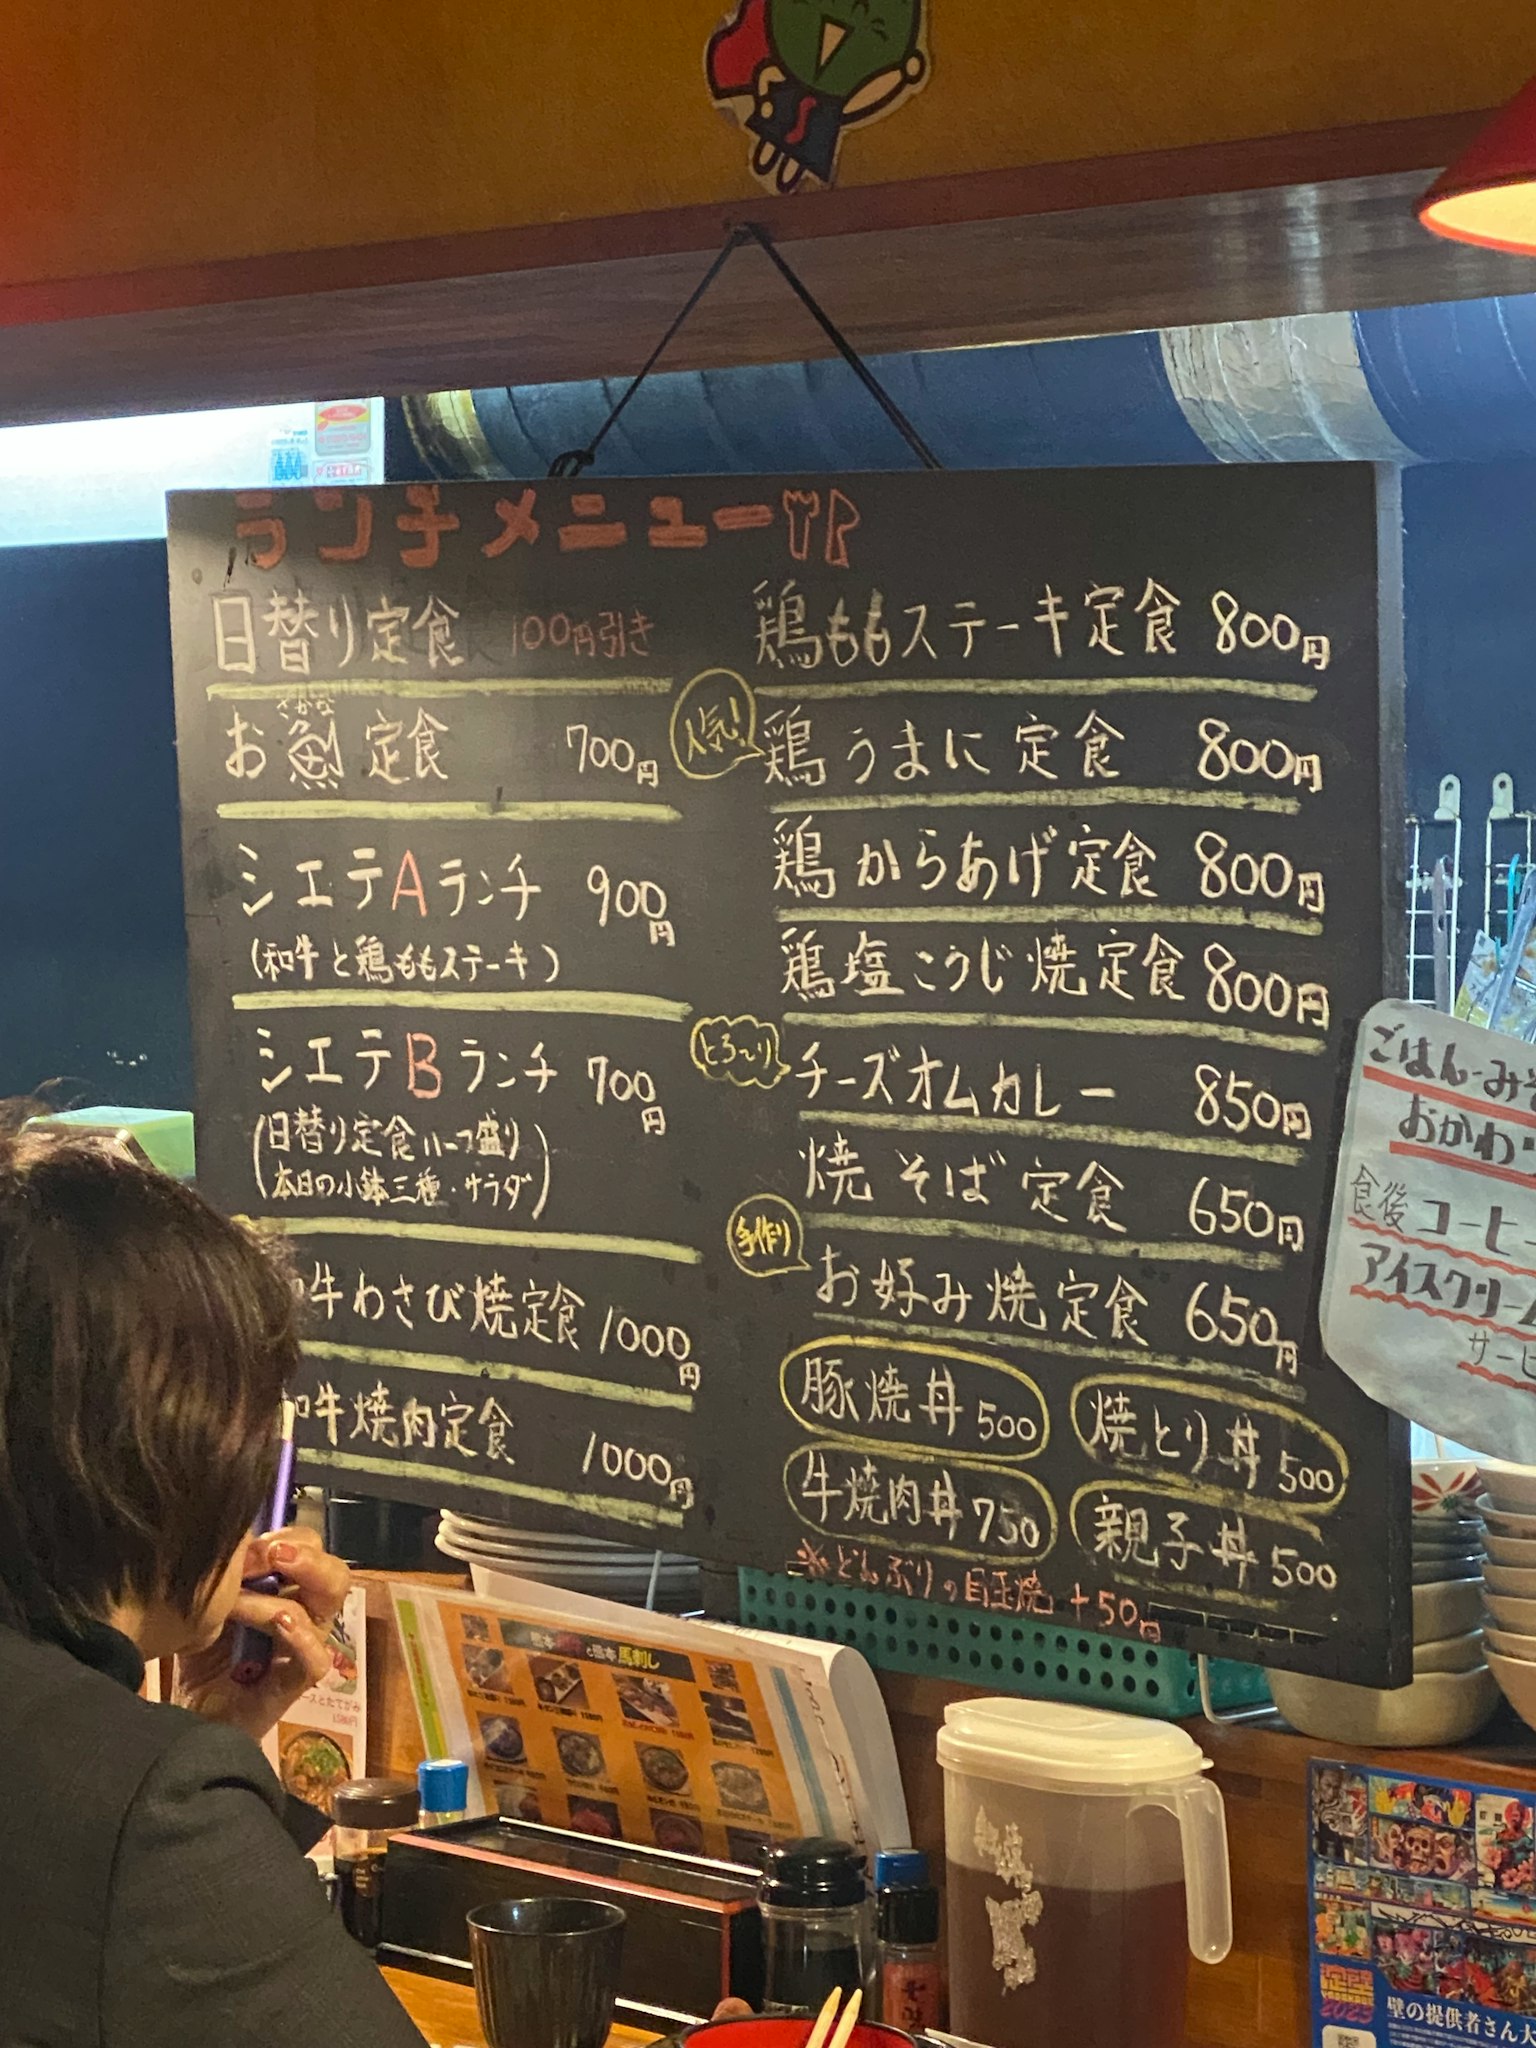 ランチメニュー
日替り定食 100円引き
さかな
お魚定食 700円
シエテAランチ 900円
(和牛と鶏ももステーキ)
シエテBランチ 700円
(日替り定食ハーフ盛り
本日の小鉢三種・サラダ)
牛わさび焼定食 1000円
和牛焼肉定食 1000円
鶏ももステーキ定食 800円
人気!
鶏うまに定食 800円
鶏からあげ定食 800円
鶏塩こうじ焼定食 800円
とろ〜り
チーズオムカレー 850円
焼そば定食 650円
手作り
お好み焼定食 650円
豚焼丼 500
焼とり丼 500
牛焼肉丼 750
親子丼 500
※どんぶりの目玉焼 +50円
ごはん・みそ
おかわり
食後コーヒー
アイスクリーム
サービ
馬刺し
2025
壁の提供者さん大